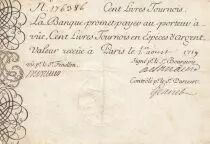 N. 176386 Cent Livres Tournois.
La Banque promet payer au porteur à
vüe, Cent Livres Tournois en Especes d'argent,
Valeur reçeüe à Paris le 1. 1719
Signé p.r le S.r Bourgeois
vû p.r le S.r Fenellon
Controllé p.r le S.r Durevest